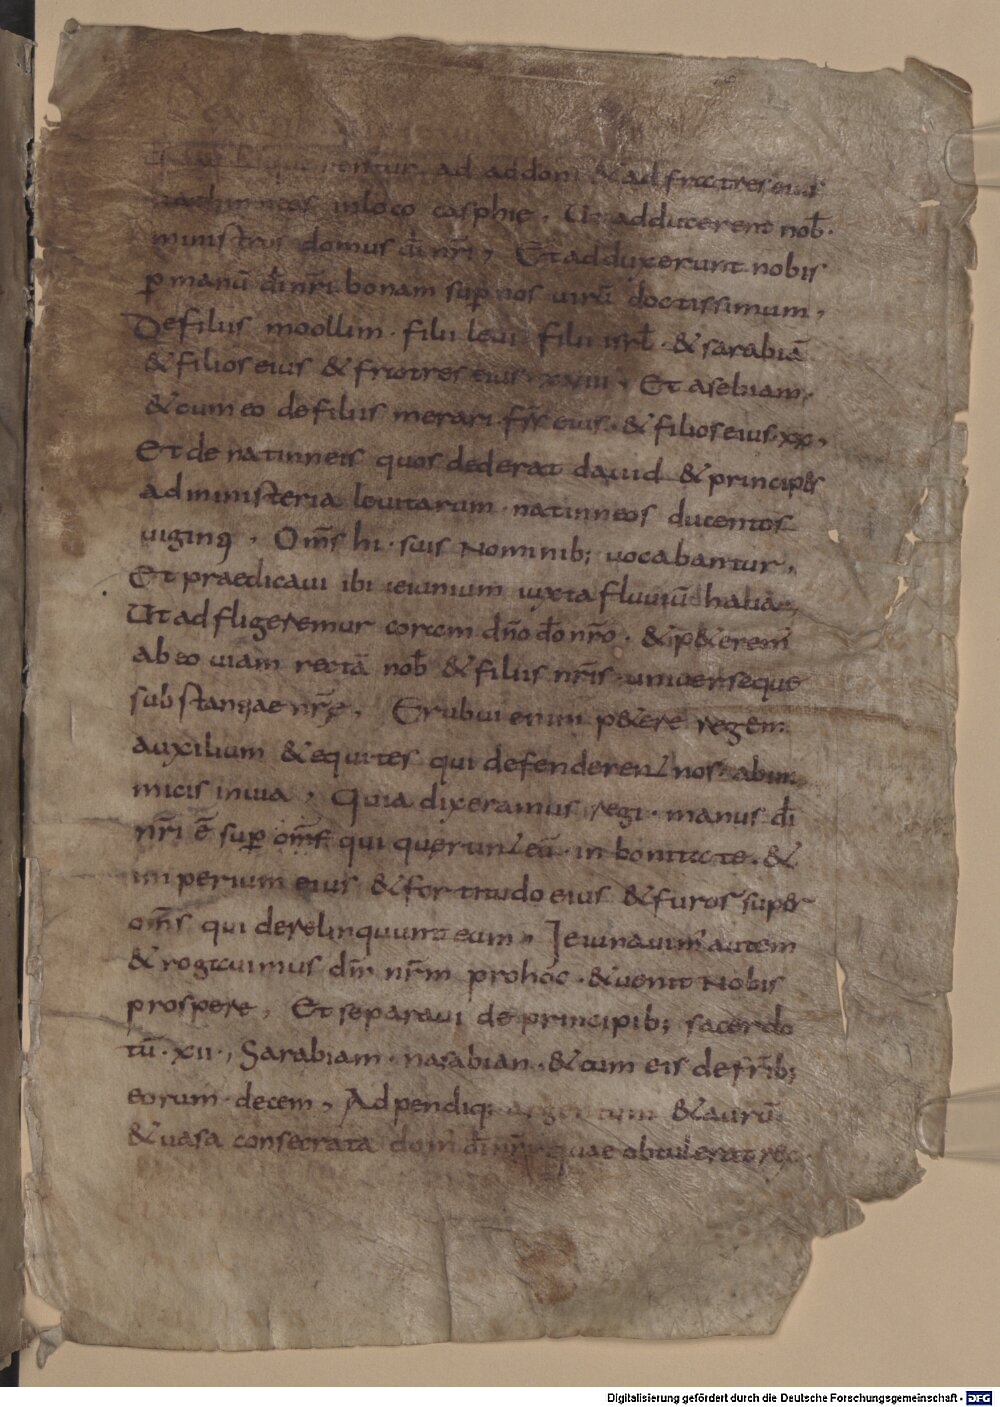 loquerentur ad addom & ad fratres eius
nathinneos inloco casphię . Ut adducerent nob̄ .
ministros domus dī nr̄i , Et adduxerunt nobis
ꝑ manū dī nr̄i bonam suꝑ nos uirū doctissimum ,
De filiis moollim · filii leui filii isrl̄ · & sarabiā
& filios eius & fratres eius · xviii , Et asebiam ·
& cum eo de filiis merari · fr̄s eius · & filios eius · xx ,
Et de natinneis quos dederat dauid & principes
ad ministeria leuitarum · natinneos ducentos
uiginti , Om̄s hi · suis Nominib; uocabantur ,
Et praedicaui ibi ieiunium iuxta fluuiū hahaa ,
Ut adfligeremur coram dn̄o dō nr̄o · & ꝑ&erem̄
ab eo uiam rectā nob̄ & filiis nr̄is · universeque
substanzae nr̄ę , Erubui enim p&ere regem
auxilium & equites qui defenderent nos · abini
micis in uia , Quia dixeramus regi · manus dī
nr̄i ē suꝑ om̄s qui querunt eū · in bonitate . &
imperium eius & fortitudo eius & furor super
om̄s qui derelinquunt eum , Ieiunauim̄ autem
& rogauimus dm̄ nr̄m pro hoc · & uenit Nobis
prospere , Et separaui de principib; sacerdo
tū · xii · , Sarabiam · nasabian · & cum eis de fr̄ib;
eorum · decem , Adpendiq; argentum & aurū
& uasa consecrata dom̄ dī nr̄i quae obtulerat rex
Digitalisierung gefördert durch die Deutsche Forschungsgemeinschaft - DFG